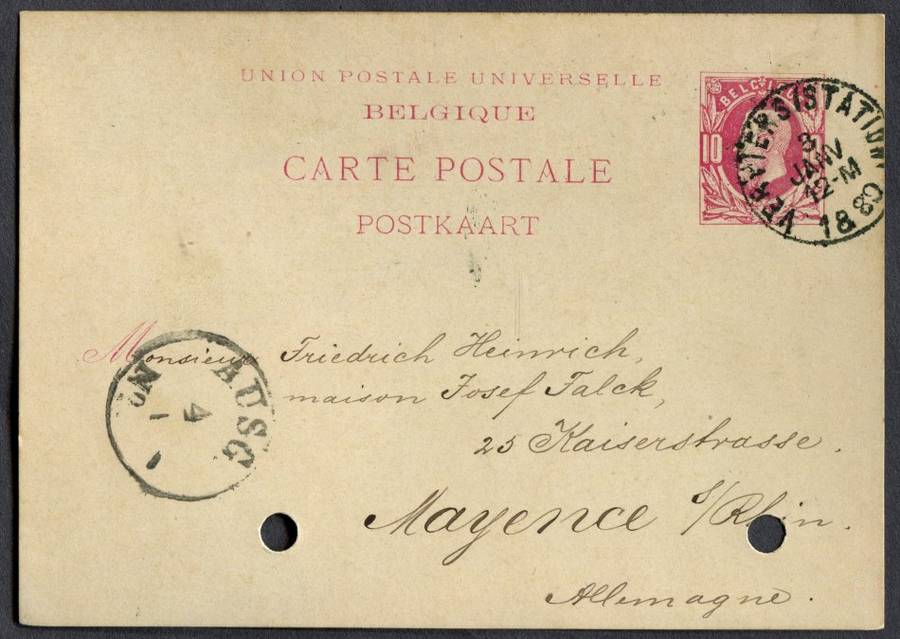 UNION POSTALE UNIVERSELLE
BELGIQUE
CARTE POSTALE
POSTKAART
BELGIQUE
10
VERVIERS (STATION)
3
JANV
12-M
1883
Monsieur Friedrich Heinrich,
maison Josef Falck,
25 Kaiserstrasse.
Mayence s/Rhin.
Allemagne.
AUSG
4
1
1
N